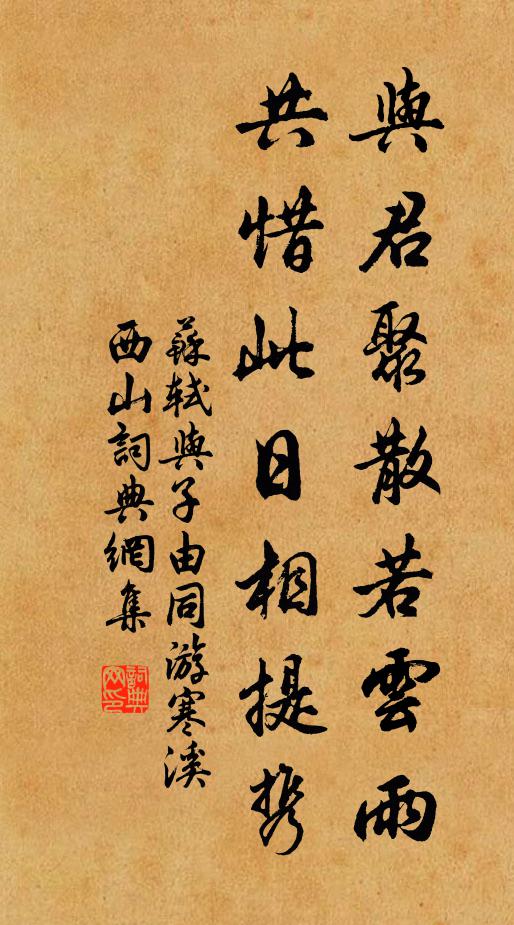 與君聚散若雲雨
共惜此日相提攜
蘇軾與子由同游寒溪
西山詞典網集
詞典
网印